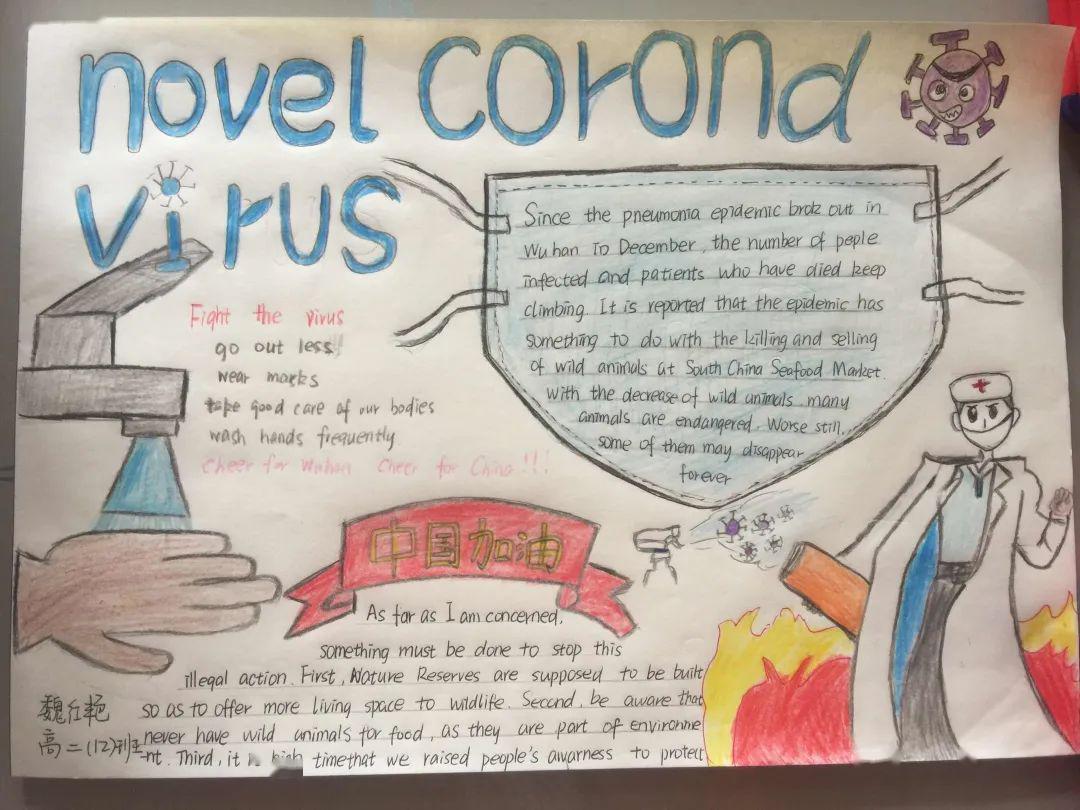 novel corond
virus
Since the pneumonia epidemic brok out in
Wuhan in December, the number of peple
infected and patients who have died keep
climbing. It is reported that the epidemic has
something to do with the killing and selling
of wild animals at South China Seafood Market.
with the decrease of wild animals many
animals are endangered. Worse still,
some of them may disappear
forever
Fight the virus
go out less!
wear marks
take good care of our bodies
wash hands frequently
cheer for Wuhan cheer for China!!!
中国加油
As far as I am concerned,
something must be done to stop this
illegal action. First, Nature Reserves are supposed to be built
so as to offer more living space to wildlife. Second, be aware that
never have wild animals for food, as they are part of environme
-nt. Third, it is high time that we raised people's awarness to protect
魏红艳
高二(12)班